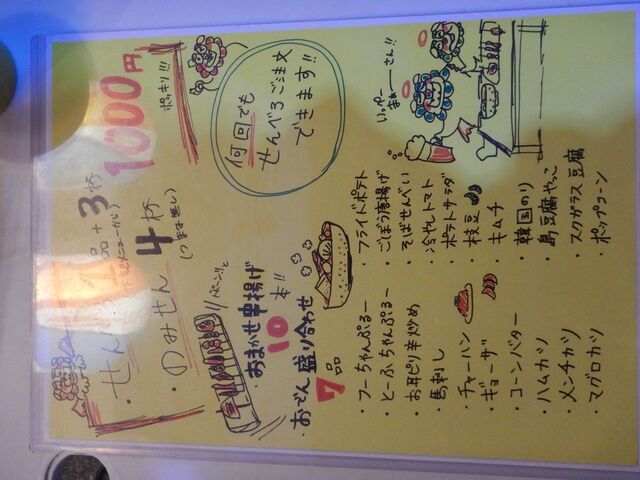 1000円
ポッキリ!!!
・せんべろ 1品+3杯
(下のメニューから)
・のみせん 4杯
(つまみ無し)
何回でも
せんべろご注文
できます!!
いっぺー
まーさん!!
おまかせ串揚げ
10本!!
・おでん盛り合わせ
7品
・フーちゃんぷるー
・とーふちゃんぷるー
・お耳ピリ辛炒め
・馬刺し
・チャーハン
・ギョーザ
・コーンバター
・ハムカツ
・メンチカツ
・マグロカツ
・フライドポテト
・ごぼう唐揚げ
・そばせんべい
・冷やしトマト
・ポテトサラダ
・枝豆
・キムチ
・韓国のり
・島豆腐やっこ
・スクガラス豆腐
・ポップコーン